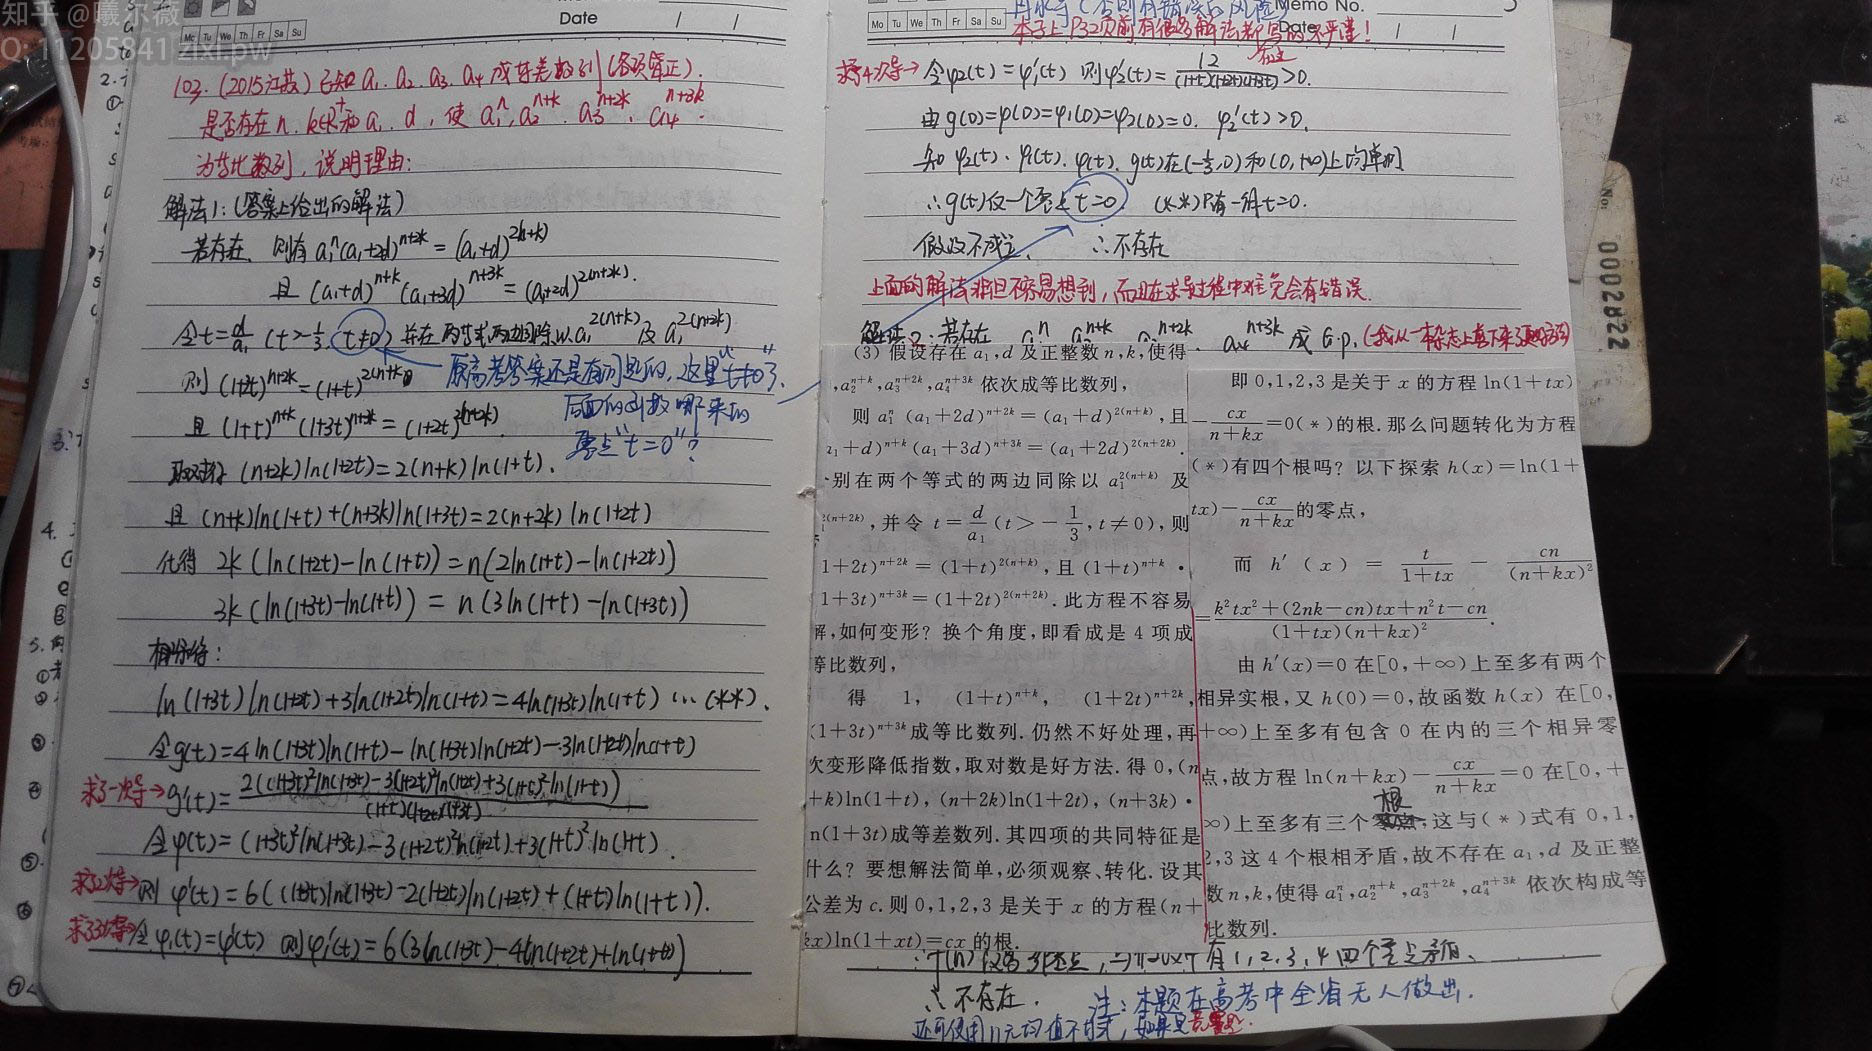 知乎 @曦尔薇
Q: 11205841 zixi.pw
Date / /
Mo Tu We Th Fr Sa Su
103. (2015江苏) 已知 a₁. a₂. a₃. a₄ 成等差数列 (各项为正).
是否存在 n. k∈R⁺和 a₁. d, 使 a₁ⁿ, a₂ⁿ⁺ᵏ. a₃ⁿ⁺²ᵏ. a₄ⁿ⁺³ᵏ.
为等比数列, 说明理由:
解法1: (答案上给出的解法)
若存在. 则有 a₁ⁿ(a₁+2d)ⁿ⁺²ᵏ = (a₁+d)²⁽ⁿ⁺ᵏ⁾
且 (a₁+d)ⁿ⁺ᵏ (a₁+3d)ⁿ⁺³ᵏ = (a₁+2d)²⁽ⁿ⁺²ᵏ⁾.
令 t=d/a₁ (t>-1/3, t≠0) 并在两等式两边同除以 a₁²⁽ⁿ⁺ᵏ⁾ 及 a₁²⁽ⁿ⁺²ᵏ⁾
则 (1+2t)ⁿ⁺²ᵏ = (1+t)²⁽ⁿ⁺ᵏ⁾
原高考答案还是有问题的, 这里"t≠0"了,
且 (1+t)ⁿ⁺ᵏ (1+3t)ⁿ⁺³ᵏ = (1+2t)²⁽ⁿ⁺²ᵏ⁾.
后面的函数哪来的
零点"t=0"?
取对得 (n+2k)ln(1+2t)=2(n+k)ln(1+t).
且 (n+k)ln(1+t)+(n+3k)ln(1+3t)=2(n+2k)ln(1+2t)
化得 2k(ln(1+2t)-ln(1+t))=n(2ln(1+t)-ln(1+2t))
3k(ln(1+3t)-ln(1+t)) = n(3ln(1+t)-ln(1+3t))
相除得:
ln(1+3t)ln(1+2t)+3ln(1+2t)ln(1+t)=4ln(1+3t)ln(1+t) … (**).
令g(t)=4ln(1+3t)ln(1+t)-ln(1+3t)ln(1+2t)-3ln(1+2t)ln(1+t)
求了一次导→ g'(t)=2((1+3t)²ln(1+3t)-3(1+2t)²ln(1+2t)+3(1+t)²ln(1+t))/(1+t)(1+2t)(1+3t)
令 φ(t)=(1+3t)²ln(1+3t)-3(1+2t)²ln(1+2t)+3(1+t)²ln(1+t).
求了2次导→ 则 φ'(t)=6((1+3t)ln(1+3t)-2(1+2t)ln(1+2t)+(1+t)ln(1+t)).
求了3次导→ 令 φ₁(t)=φ'(t) 则 φ₁'(t)=6(3ln(1+3t)-4ln(1+2t)+ln(1+t))
Memo No.
Mo Tu We Th Fr Sa Su
Date / /
本子上P32页前有很多解法都写的不严谨!
求了4次导→ 令φ₂(t)=φ₁'(t) 则φ₂'(t)=12/(1+t)(1+2t)(1+3t)>0.
由 g(0)=φ(0)=φ₁(0)=φ₂(0)=0. φ₂'(t)>0.
知 φ₂(t). φ₁(t). φ(t). g(t)在(-1/3,0)和(0,+∞)上均单调
∴g(t)仅一个零点t=0. (**)只有一解t=0.
假设不成立. ∴不存在
上面的解法非但不容易想到, 而且在求导过程中难免会有错误.
解法2: 若存在 a₁ⁿ a₂ⁿ⁺ᵏ a₃ⁿ⁺²ᵏ a₄ⁿ⁺³ᵏ 成 G.P.
(3) 假设存在 a₁,d 及正整数 n,k,使得
,a₂ⁿ⁺ᵏ,a₃ⁿ⁺²ᵏ,a₄ⁿ⁺³ᵏ 依次成等比数列,
则 a₁ⁿ(a₁+2d)ⁿ⁺²ᵏ=(a₁+d)²⁽ⁿ⁺ᵏ⁾,且
₁+d)ⁿ⁺ᵏ(a₁+3d)ⁿ⁺³ᵏ=(a₁+2d)²⁽ⁿ⁺²ᵏ⁾.
别在两个等式的两边同除以 a₁²⁽ⁿ⁺ᵏ⁾ 及
²⁽ⁿ⁺²ᵏ⁾,并令 t=d/a₁(t>-1/3,t≠0),则
1+2t)ⁿ⁺²ᵏ=(1+t)²⁽ⁿ⁺ᵏ⁾,且(1+t)ⁿ⁺ᵏ·
1+3t)ⁿ⁺³ᵏ=(1+2t)²⁽ⁿ⁺²ᵏ⁾. 此方程不容易
解,如何变形? 换个角度,即看成是 4 项成
等比数列,
得 1, (1+t)ⁿ⁺ᵏ, (1+2t)ⁿ⁺²ᵏ,
(1+3t)ⁿ⁺³ᵏ成等比数列. 仍然不好处理,再
次变形降低指数,取对数是好方法. 得 0,(n
+k)ln(1+t),(n+2k)ln(1+2t),(n+3k)·
n(1+3t)成等差数列. 其四项的共同特征是
什么? 要想解法简单,必须观察、转化. 设其
公差为 c. 则 0,1,2,3 是关于 x 的方程(n+
kx)ln(1+xt)=cx 的根.
即 0,1,2,3 是关于 x 的方程 ln(1+tx)
-cx/(n+kx)=0(*)的根. 那么问题转化为方程
(*)有四个根吗? 以下探索 h(x)=ln(1+
tx)-cx/(n+kx)的零点,
而 h'(x)=t/(1+tx)-cn/(n+kx)²
=k²tx²+(2nk-cn)tx+n²t-cn/(1+tx)(n+kx)².
由 h'(x)=0 在[0,+∞)上至多有两个
相异实根,又 h(0)=0,故函数 h(x) 在[0,
+∞)上至多有包含 0 在内的三个相异零
点,故方程 ln(n+kx)-cx/(n+kx)=0 在[0,+
∞)上至多有三个根,这与(*)式有 0,1,
2,3 这 4 个根相矛盾,故不存在 a₁,d 及正整
数 n,k,使得 a₁ⁿ,a₂ⁿ⁺ᵏ,a₃ⁿ⁺²ᵏ,a₄ⁿ⁺³ᵏ 依次构成等
比数列.
有1,2,3,4四个零点矛盾、
∴不存在.
注: 本题在高考中全省无人做出.
还可使用n元均值不等式,
No:
0002822